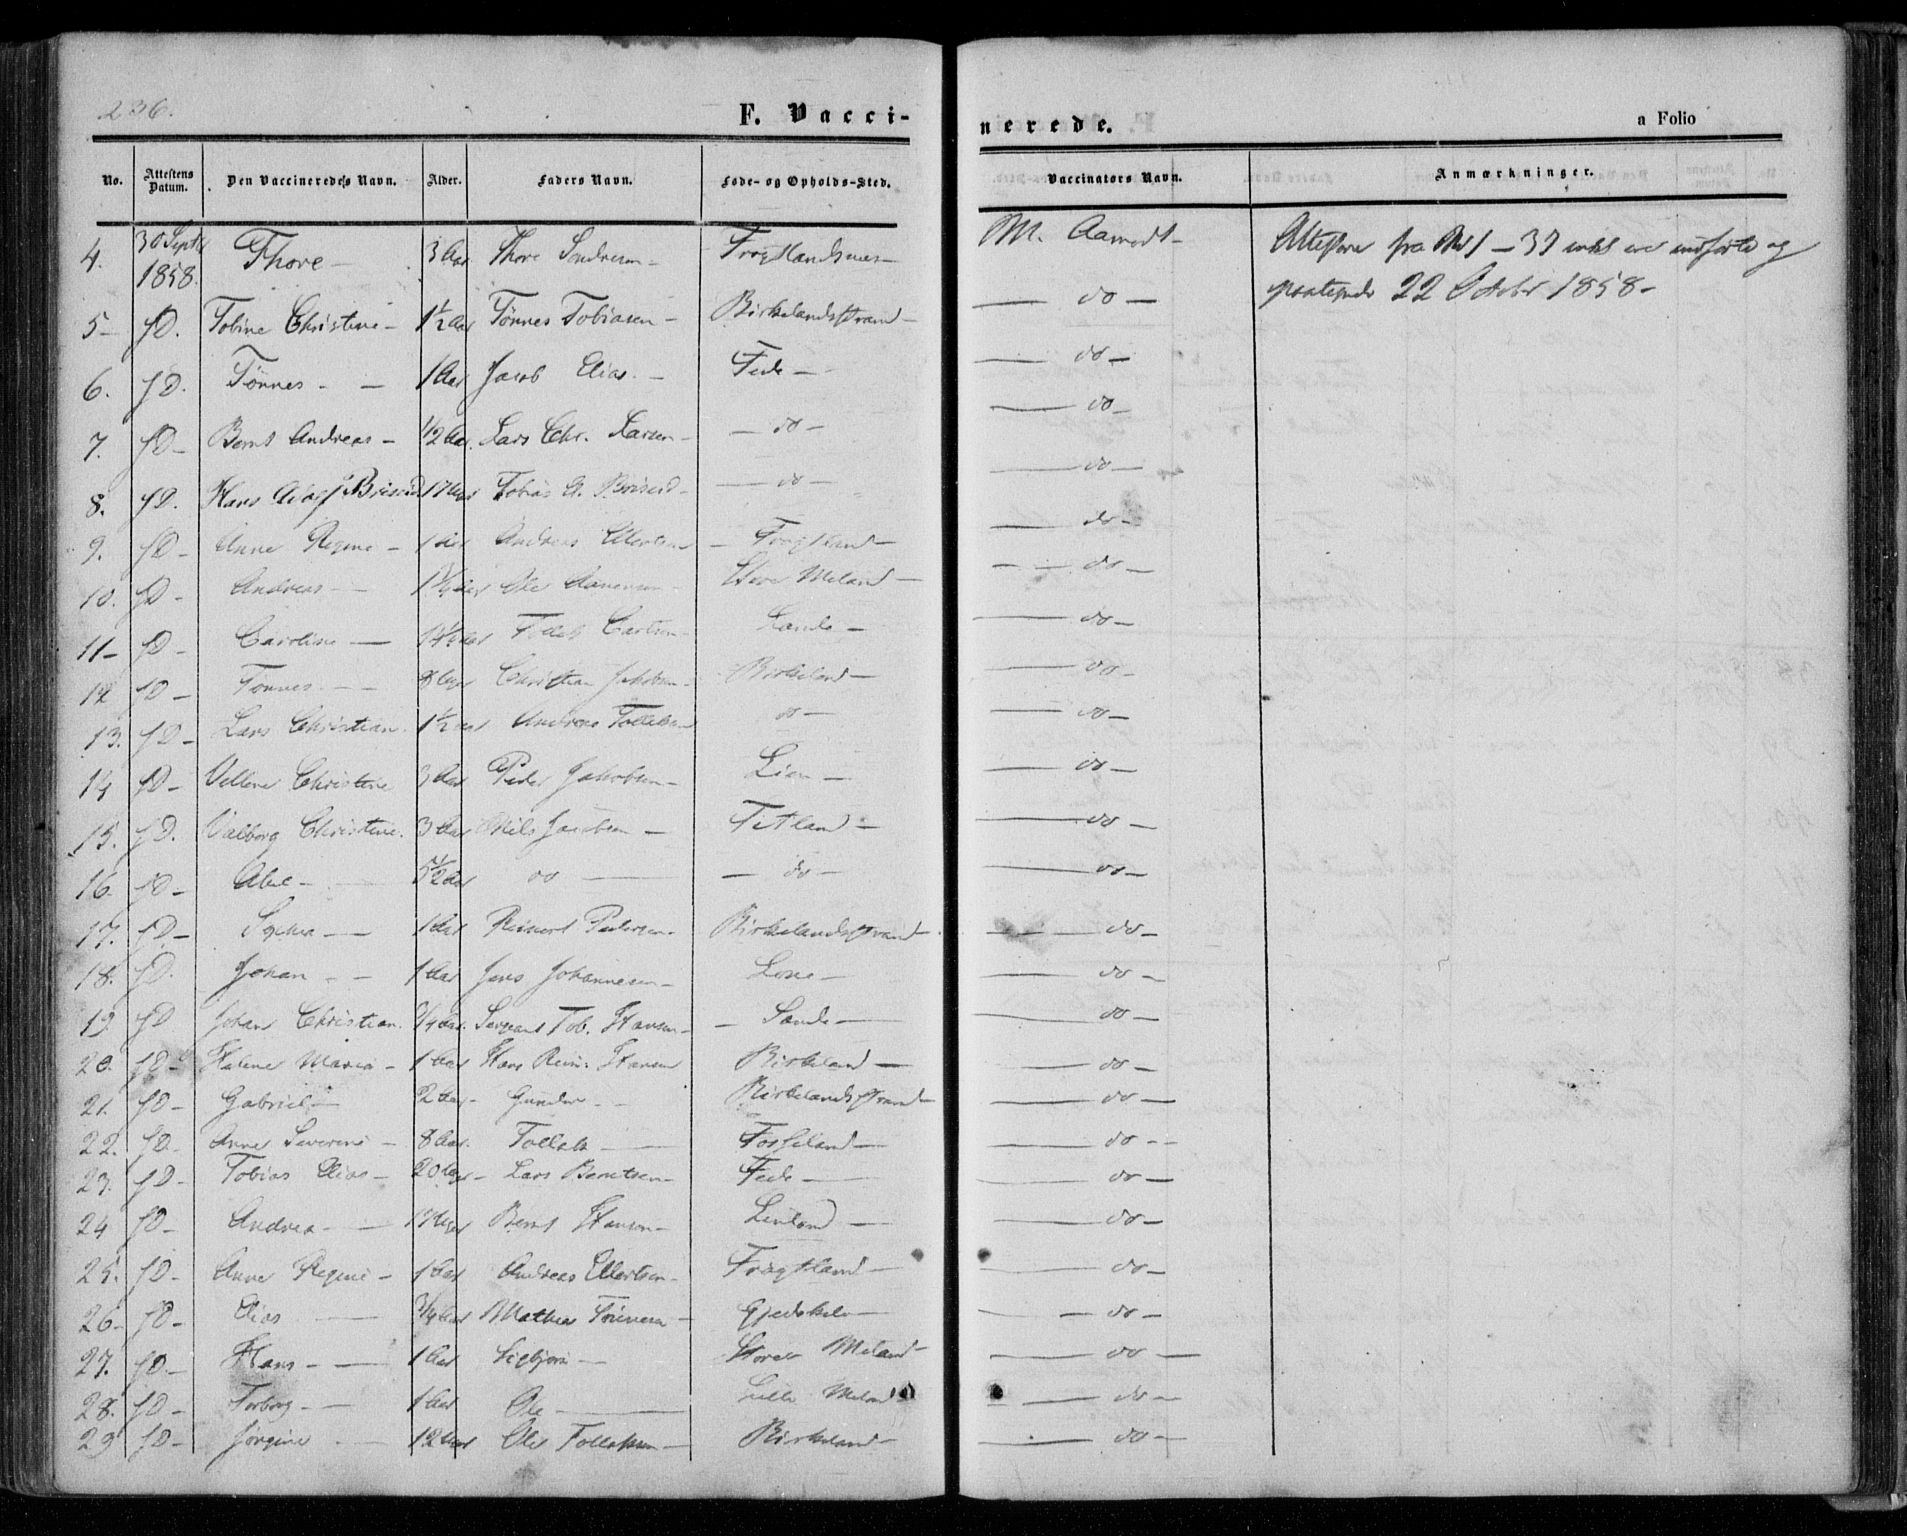 236.
F. Vacci-
nerede.
a Folio
No. Attestens Datum. Den Vaccineredes Navn. Alder. Faders Navn. Føde- og Opholds-Sted. Vaccinators Navn. Anmærkninger.
4. 30 Septb 1858. Thore - 3 Aar Thore - M. Aamodt - Attesterne fra No 1 - 37 inkl ere indførte og
22 Octobr 1858 -
5 - fD. Tobine Christine - 1½ Aar Tønnes Tobiasen - Birkelandsstrand - — do —
6. fD. Tønnes - — 1 Aar Jacob Elias - Fede - — do —
7. fD - Bernt Andreas - 1/2 Aar Lars Chr. Larsen - — do - — do -
8. fD. Hans 17 Aar Tobias — do - — do —
9. fD - Anne Regine - 1 Aar Andreas Ellertsen - Frøgtland - — do -
10. fD - Andreas - Ole Store Meland - - - do -
11 - fD - Caroline — Sande - — do -
12 fD - Tønnes - - 8 Aar Christian Jakobsen - Birkeland - — do -
13. fD - Lars Christian 1½ Aar Andreas Tollaksen do - — do -
14 fD - Christine 3 Aar Peder Jakobsen - Lien - — do -
15. fD. Valborg Christine. 3 Aar Nils Jacobsen - — do -
16. fD - Abel - 5½ Aar do — — do - — do -
17. fD. - Sophia - 1 Aar Reinert Pedersen - Birkelandsstrand - — do -
18. fD. Johan - - 1 Aar Jens Johannesen - — do -
19 fD Johan Christian. 3/4 Aar. Sergeant Tob. Hansen - - Sande — — do -
20. fD - Maria - 1 Aar Hans Hansen Birkeland — — do -
21. fD - Gabriel - 2 Aar - Gunder - - Birkelandsstrand - — do —
22. fD. Anne Severine - 8 Aar. Tollak — — do - -
23. fD - Tobias Elias - 20 Aar - Lars Berntsen - Fede - — do —
24 fD - Andrea - — 17 Aar Bernt Hansen - — — do -
25. fD - Anne Regine - 1 Aar Andreas Ellertsen - Frøgtland - — do -
26 - fD - Elias — 3/4 Aar Mathias - — do -
27. fD. - Hans - — 1 Aar Sigbjørn - Store Meland - — do —
28. fD - Torborg - - 1 Aar Ole — Lille Meland — do -
29 fD - Jorgine - — 12 Aar Ole Tollaksen - Birkeland - — do —